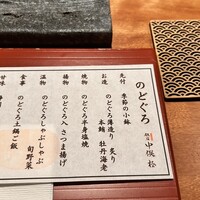 のどぐろ
中俣
先付 季節の小鉢
お造 のどぐろ薄造り 炙り
本鮪 牡丹海老
焼物 のどぐろ半身塩焼
揚物 のどぐろ入さつま揚げ
温物 のどぐろしゃぶしゃぶ
旬野菜
食事 のどぐろ土鍋ご飯
甘味